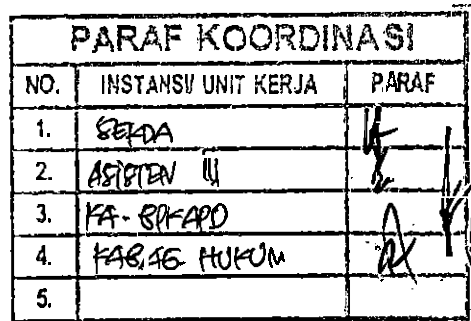 PARAF KOORDINASI
NO. INSTANSI/ UNIT KERJA PARAF
1. SEKDA
2. ASISTEN III
3. KA-BPKAPD
4. KABAG HUKUM
5.